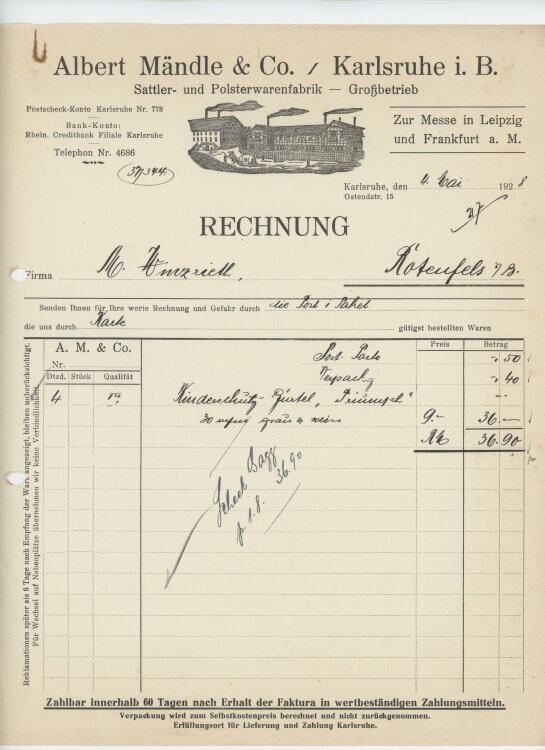 Albert Mändle & Co. / Karlsruhe i. B.
Sattler- und Polsterwarenfabrik — Großbetrieb
Postscheck-Konto Karlsruhe Nr. 778
Bank-Konto:
Rhein. Creditbank Filiale Karlsruhe
Telephon Nr. 4686
37/344.
Zur Messe in Leipzig
und Frankfurt a. M.
Karlsruhe, den 4. Mai 1928
Ostendstr. 15
RECHNUNG
Firma M. Hinzrieth, Rotenfels i/B.
Senden Ihnen für Ihre werte Rechnung und Gefahr durch die Post i Paket
die uns durch Karte gütigst bestellten Waren
A. M. & Co.
Nr.
Dtzd. Stück Qualität
Preis Betrag
Post Porto -.50
Verpackg -.40
4 Kinderschutz-Gürtel "Triumph"
30 grau & weiss 9.- 36.—
RM 36.90
Scheck Bagg
36.90
p. 1.8.
Reklamationen später als 8 Tage nach Empfang der Ware angezeigt, bleiben unberücksichtigt.
Für Wechsel auf Nebenplätze übernehmen wir keine Verbindlichkeit.
Zahlbar innerhalb 60 Tagen nach Erhalt der Faktura in wertbeständigen Zahlungsmitteln.
Verpackung wird zum Selbstkostenpreis berechnet und nicht zurückgenommen.
Erfüllungsort für Lieferung und Zahlung Karlsruhe.